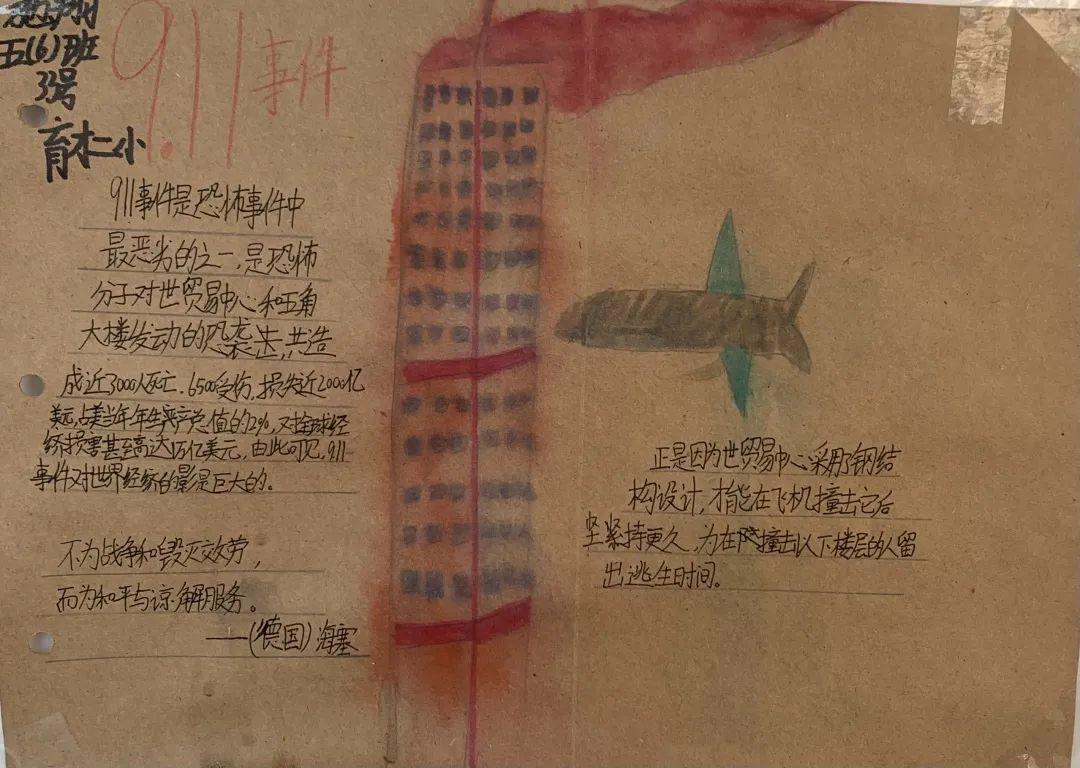 五(6)班
3号
育才二小
9.11事件
911事件是恐怖事件中
最恶劣的之一,是恐怖
分子对世贸易中心和五角
大楼发动的恐袭击,共造
成近3000人死亡.6500受伤,损失近2000亿
美元,占美当年年生产总值的2%,对全球经
济损害甚至高达1万亿美元,由此可见,911
事件对世界经济的影是巨大的。
不为战争和毁灭效劳,
而为和平与谅解服务。
——(德国)海塞
正是因为世贸易中心采用了钢结
构设计,才能在飞机撞击它后
坚紧持更久,为在撞击以下楼层的人留
出逃生时间。